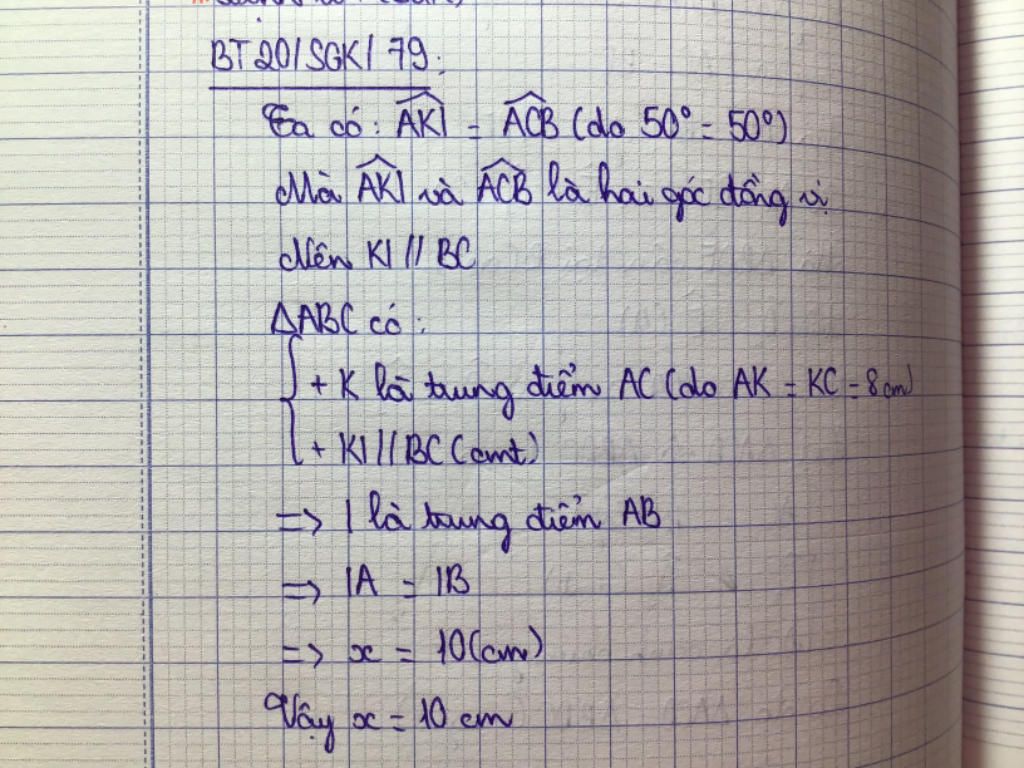 BT 20/SGK/79:
Ta có: AKI = ACB (do 50° = 50°)
Mà AKI và ACB là hai góc đồng vị
Nên KI // BC
ΔABC có:
+ K là trung điểm AC (do AK = KC = 8cm)
+ KI // BC (cmt)
=> I là trung điểm AB
=> IA = IB
=> x = 10(cm)
Vậy x = 10 cm